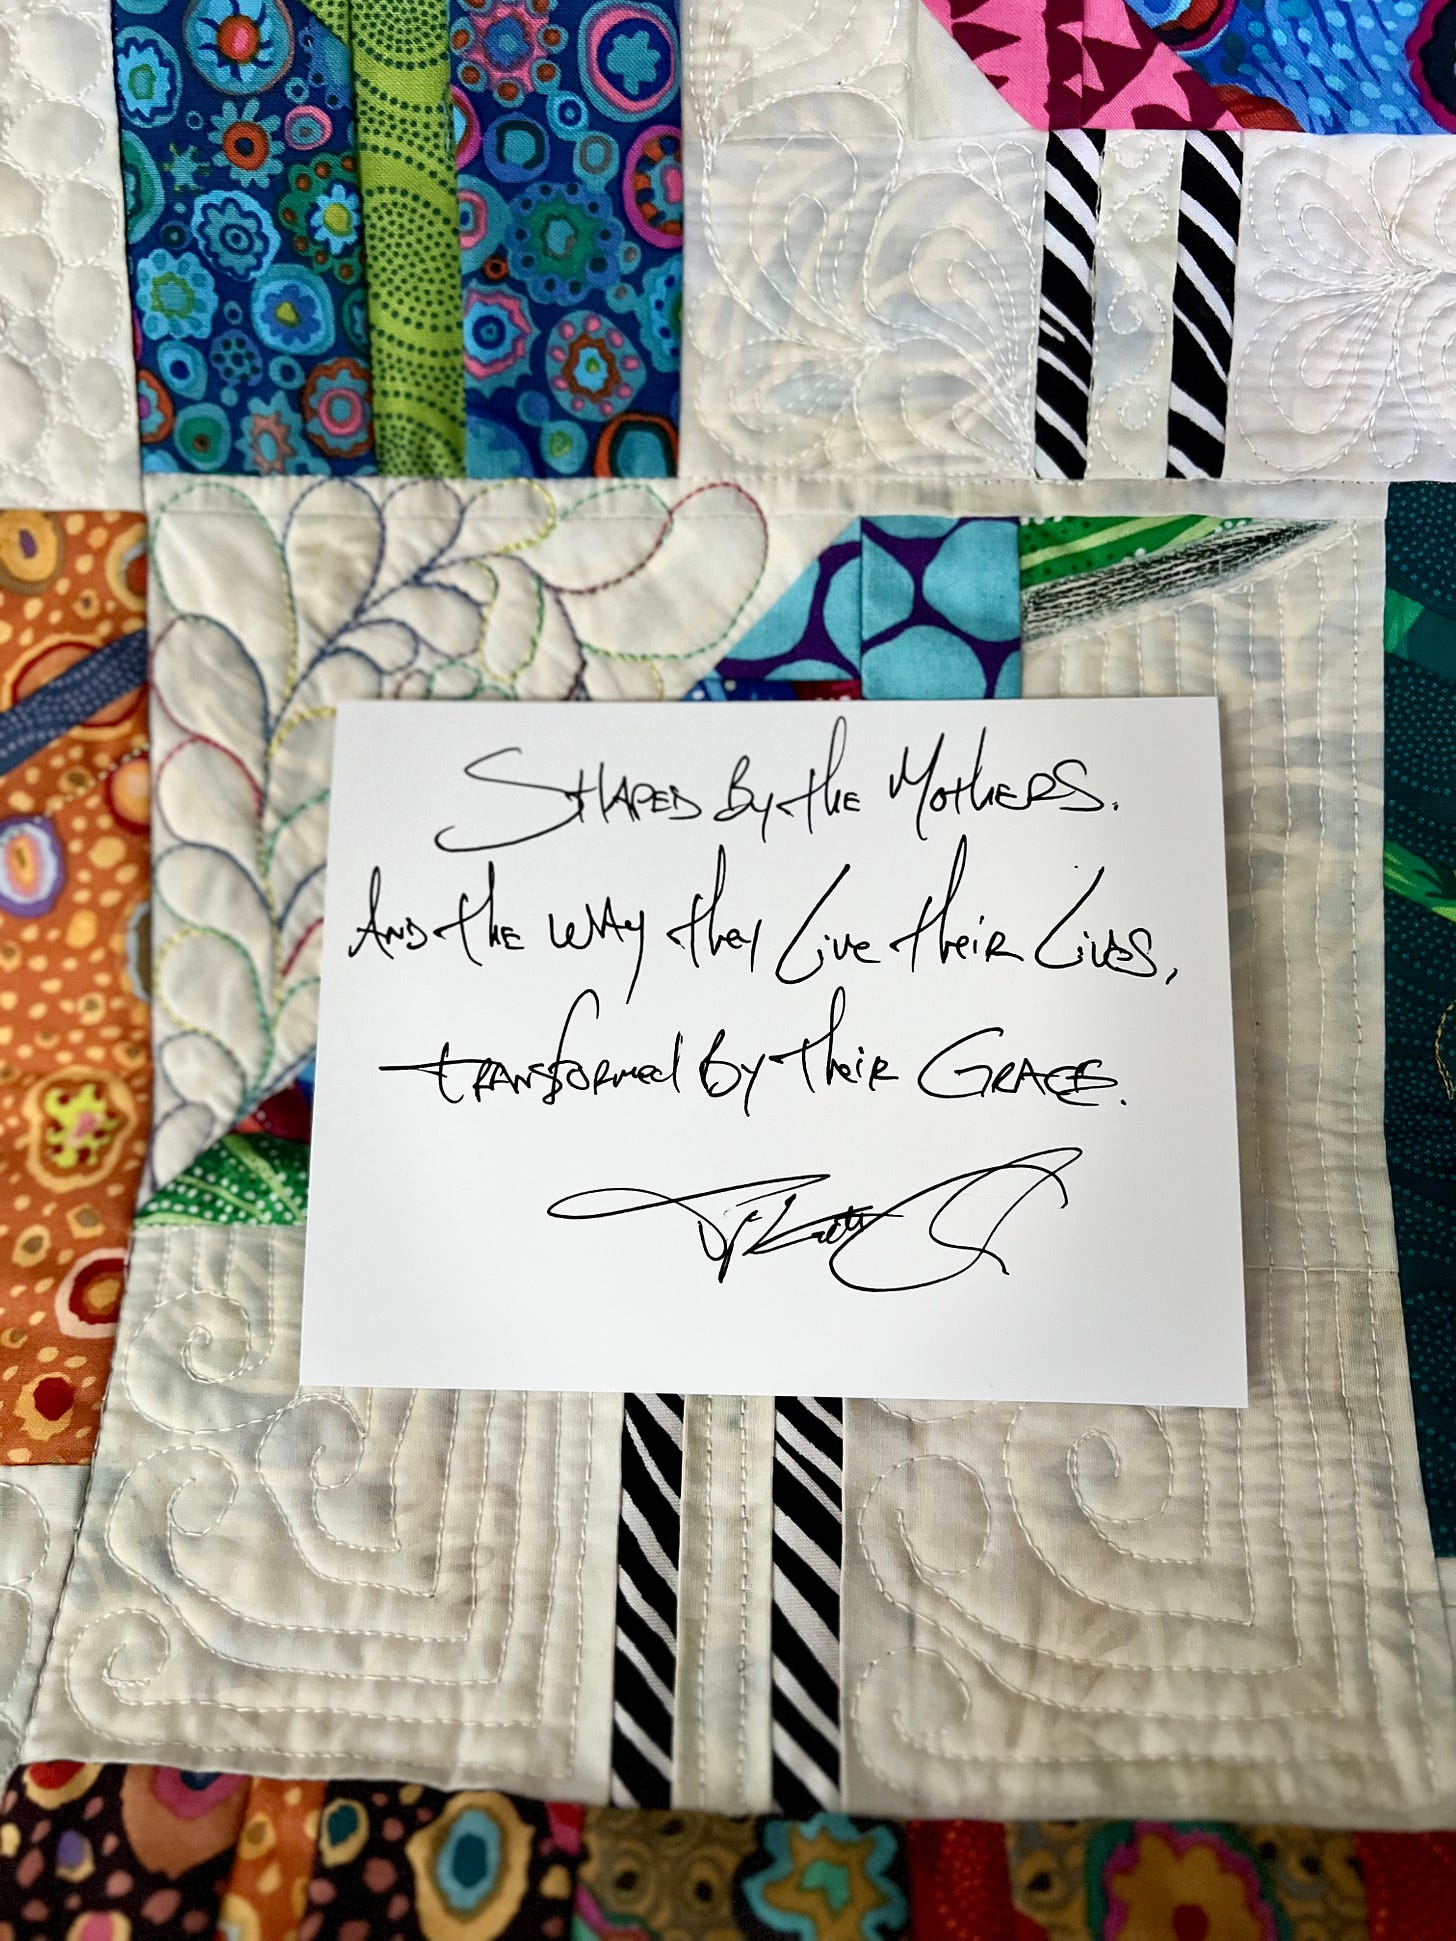 Shaped by the Mothers.
And the way they live their lives,
transformed by their Graces.